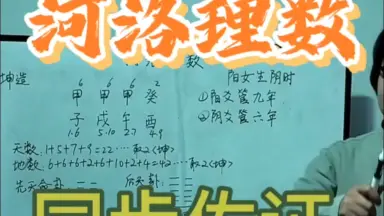 河洛理数
数
坤造
6 6 6 2
甲 甲 甲 癸
子 戌 午 酉
1·6 5·10 2·7 4·9
阳女生阴时
①阳爻管九年
②阴爻管六年
天数:1+5+7+9=22……取2<坤>
地数:6+6+6+2+6+10+2+4=42……取2<坤>
先天命卦:
后天卦:
同步佐证